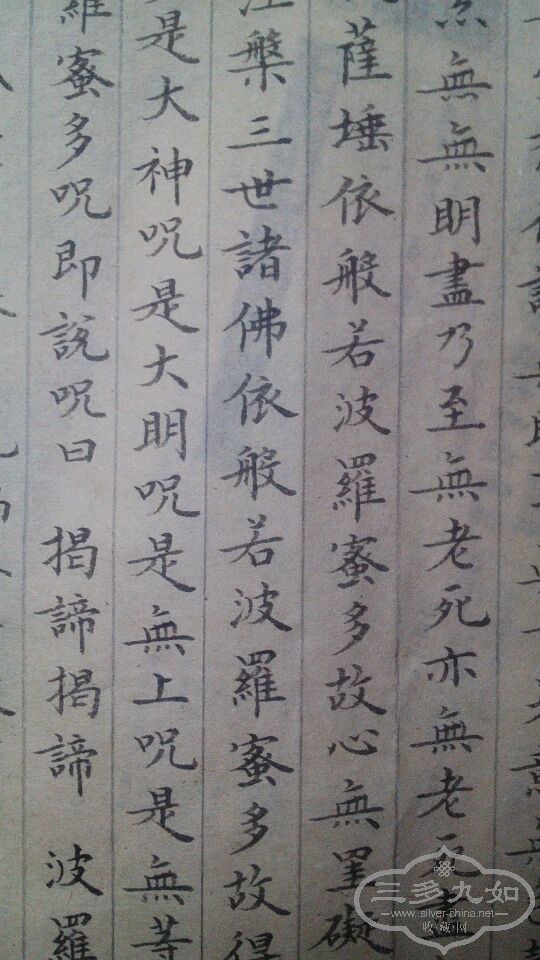 無無明盡乃至無老死亦無老死盡
薩埵依般若波羅蜜多故心無罣礙
槃三世諸佛依般若波羅蜜多故得
是大神呪是大明呪是無上呪是無等
羅蜜多呪即說呪曰 揭諦揭諦 波羅
三多九如
www.silver-china.net
收藏网